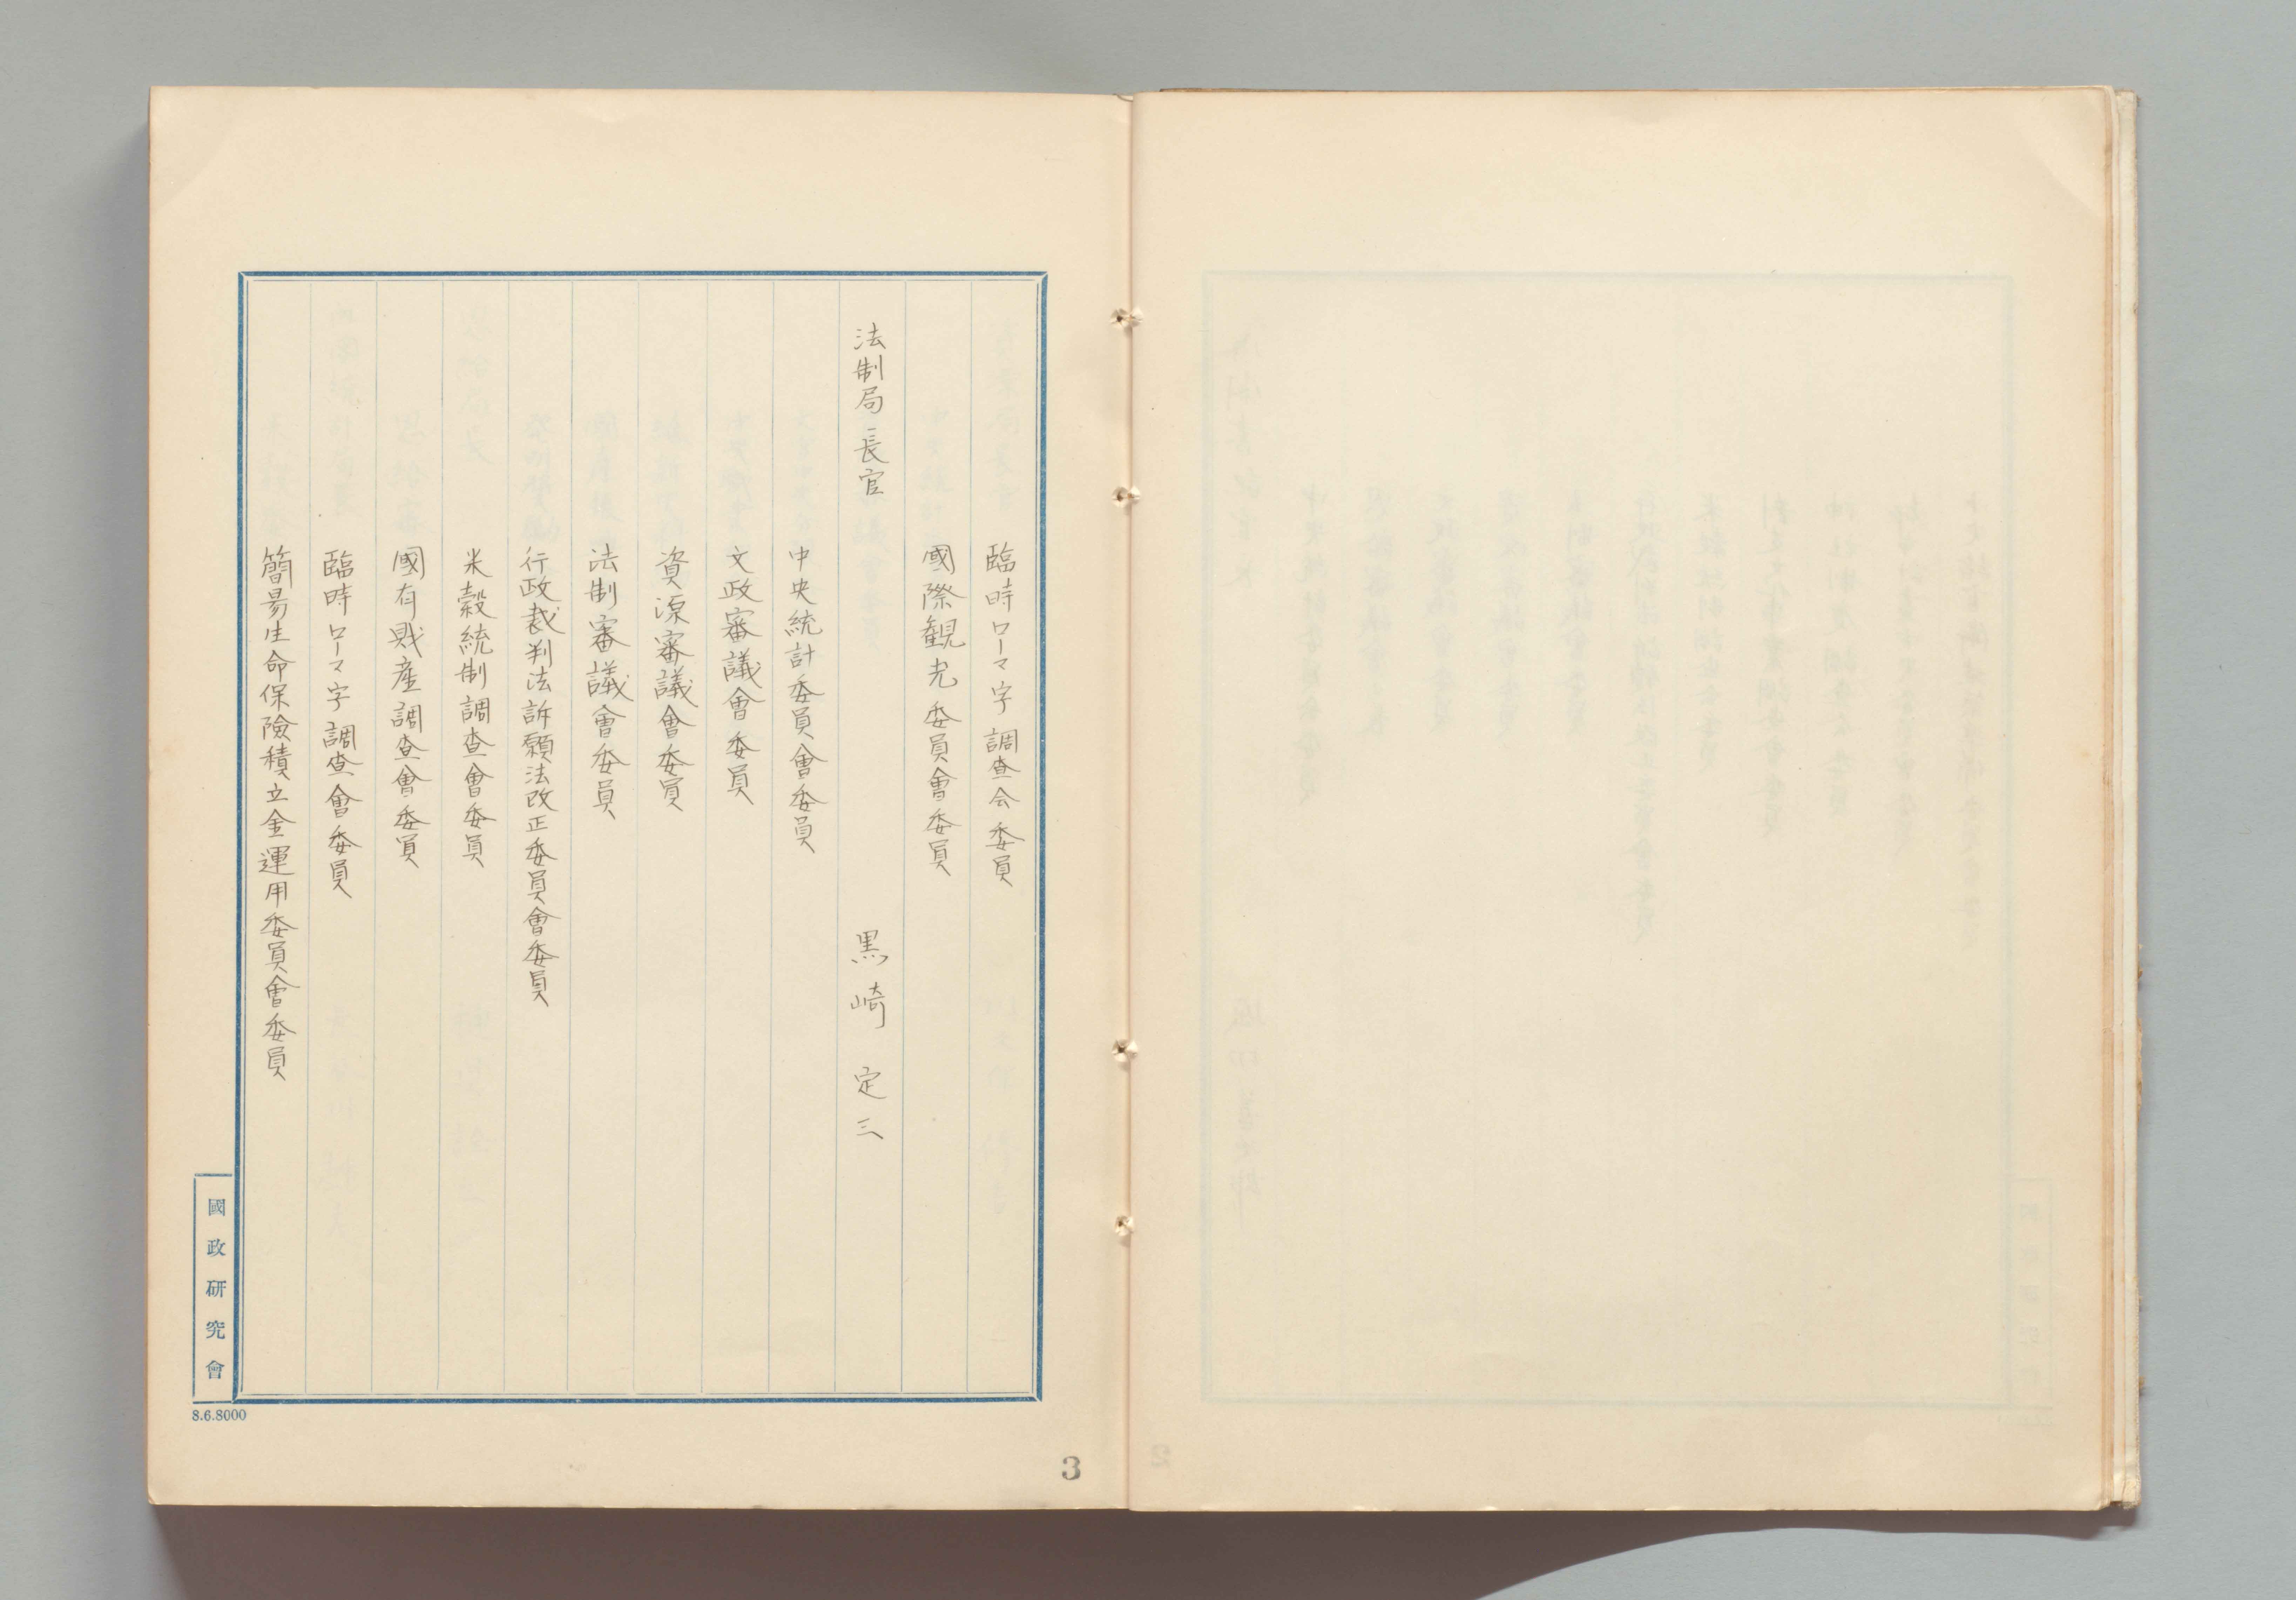 臨時ローマ字調査会委員
國際観光委員會委員
法制局長官 黒崎定三
中央統計委員會委員
文政審議會委員
資源審議會委員
法制審議會委員
行政裁判法訴願法改正委員會委員
米穀統制調査會委員
國有財産調査會委員
臨時ローマ字調査會委員
簡易生命保險積立金運用委員會委員
國政研究會
8.6.8000
3